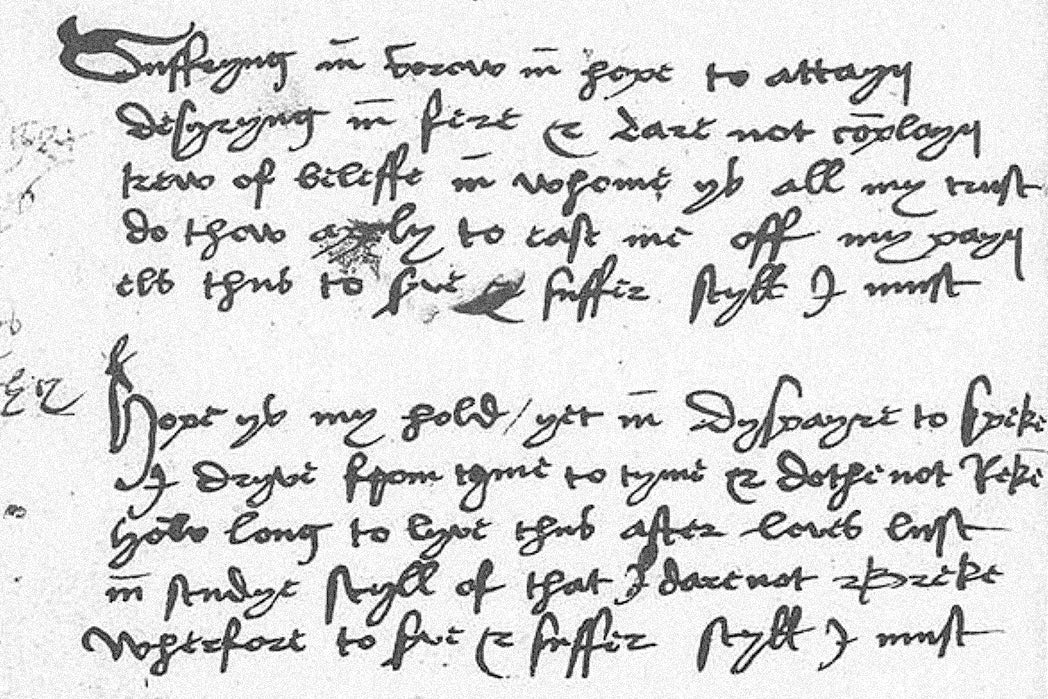 Suffryng in sorow in hope to attayn
desyryng in fere & dare not cōplayn
trew of beleffe in whome ys all my trust
do thow aply to ease me off my payn
els thus to serve & suffer styll I must
Hope ys my hold / yet in Dyspayre to speke
I dryve from tyme to tyme & dothe not Reke
how long to lyve thus after loves lust
in studye styll of that I dare not breke
wherfore to serve & suffer styll I must